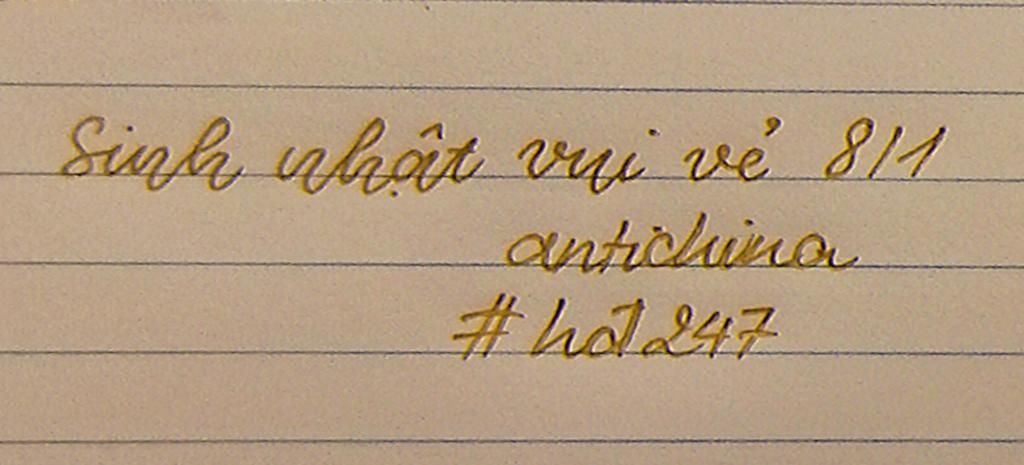 Sinh nhật vui vẻ 8/1
antichina
#hđ247